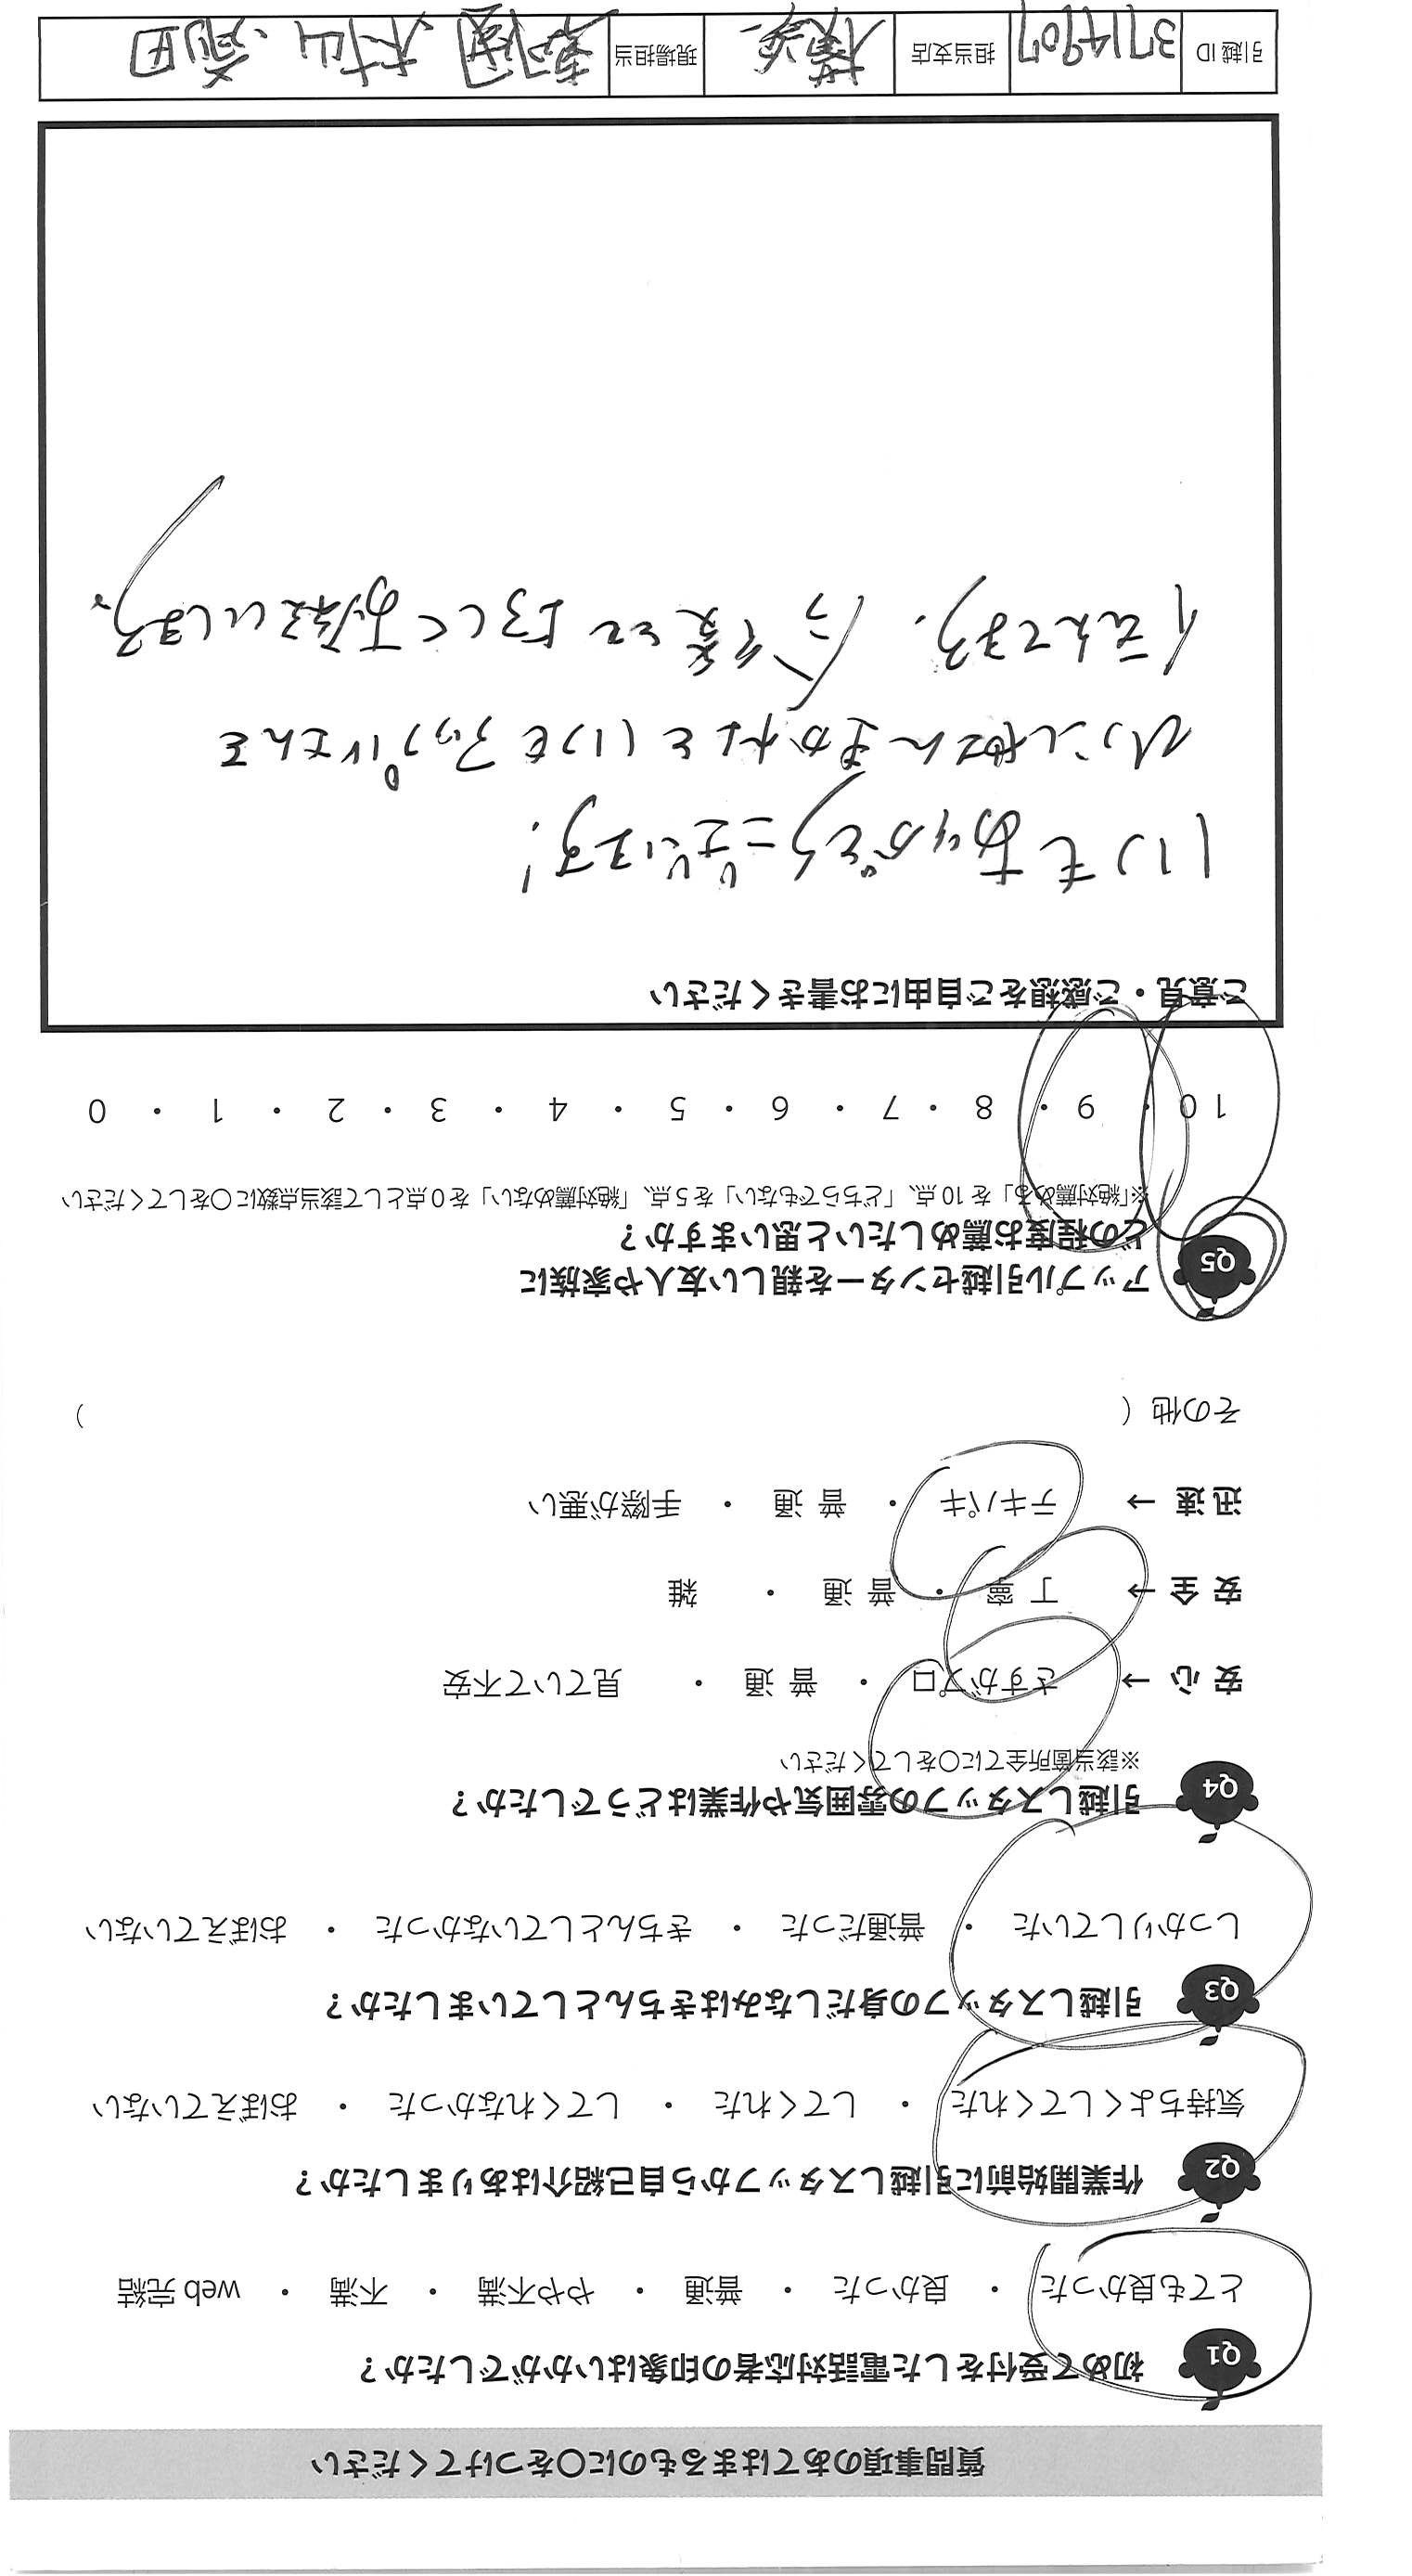 質問事項のあてはまるものに〇をつけてください
Q1 初めて受付をした電話対応者の印象はいかがでしたか？
とても良かった ・ 良かった ・ 普通 ・ やや不満 ・ 不満 ・ web 完結
Q2 作業開始前に引越しスタッフから自己紹介はありましたか？
気持ちよくしてくれた ・ してくれた ・ してくれなかった ・ おぼえていない
Q3 引越しスタッフの身だしなみはきちんとしていましたか？
しっかりしていた ・ 普通だった ・ きちんとしていなかった ・ おぼえていない
Q4 引越しスタッフの雰囲気や作業はどうでしたか？
※該当箇所全てに〇をしてください
安 心 → さすがプロ ・ 普 通 ・ 見ていて不安
安 全 → 丁 寧 ・ 普 通 ・ 雑
迅 速 → テキパキ ・ 普 通 ・ 手際が悪い
その他（ ）
Q5 アップル引越センターを親しい友人や家族に
どの程度お薦めしたいと思いますか？
※「絶対薦める」を 10 点、「どちらでもない」を 5 点、「絶対薦めない」を 0 点として該当点数に〇をしてください
10 ・ 9 ・ 8 ・ 7 ・ 6 ・ 5 ・ 4 ・ 3 ・ 2 ・ 1 ・ 0
ご意見・ご感想をご自由にお書きください
いつもありがとうございます!
ひっこしやさん いつもアップルさんを
伝えてます. 今後とも よろしくお願いします。
引越 ID 3714907 担当支店 横浜 現場担当 村山、角田